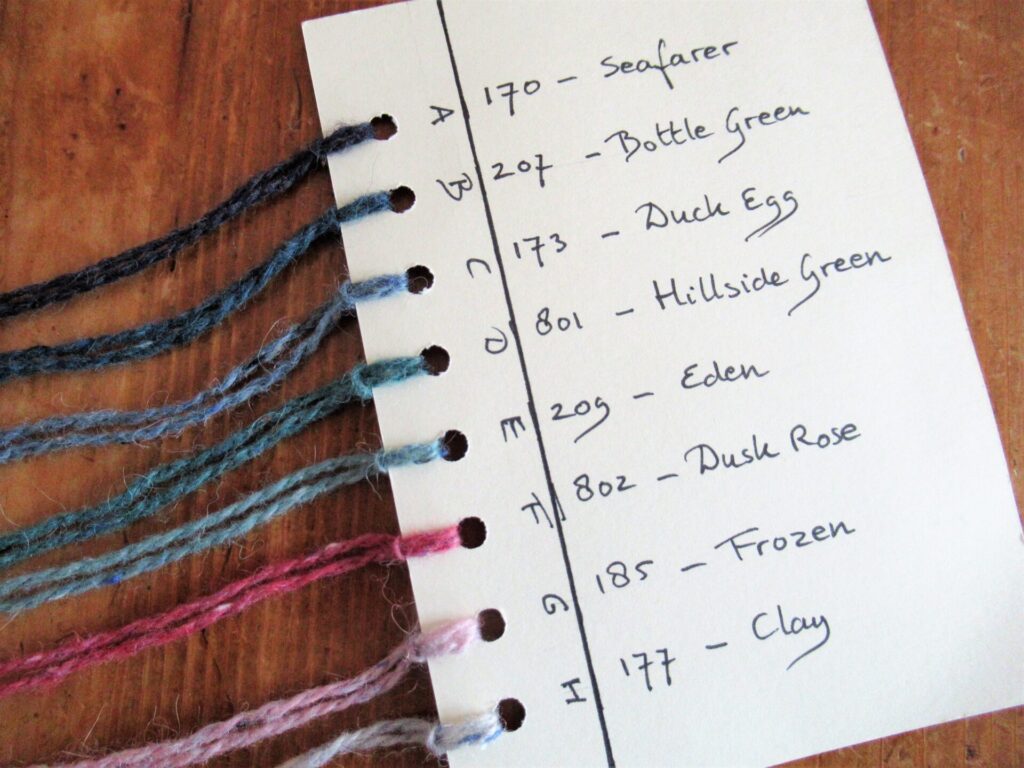 A 170 - Seafarer
B 207 - Bottle Green
C 173 - Duck Egg
D 801 - Hillside Green
E 209 - Eden
F 802 - Dusk Rose
G 185 - Frozen
H 177 - Clay